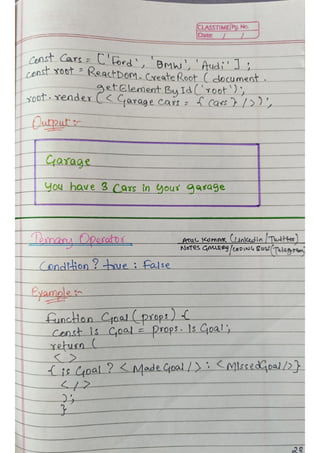 CLASSTIME Pg. No.
Date / /
const Cars = ['Ford', 'BMW', 'Audi'];
const root = ReactDOM. CreateRoot (document.
getElement By Id ('root');
root. render (< Garage cars = { cars } />);
Output :-
Garage
You have 3 Cars in Your garage
Ternary Operator
ATUL KUMAR (LinkedIn/Twitter)
NOTES GALLERY/CODING BUGS (Telegram)
Condition ? true : False
Example :-
function Goal (props) {
Const is Goal = props. Is Goal;
return (
< >
{ is Goal ? < Made Goal /> : < Missed Goal />}
</>
);
}
28